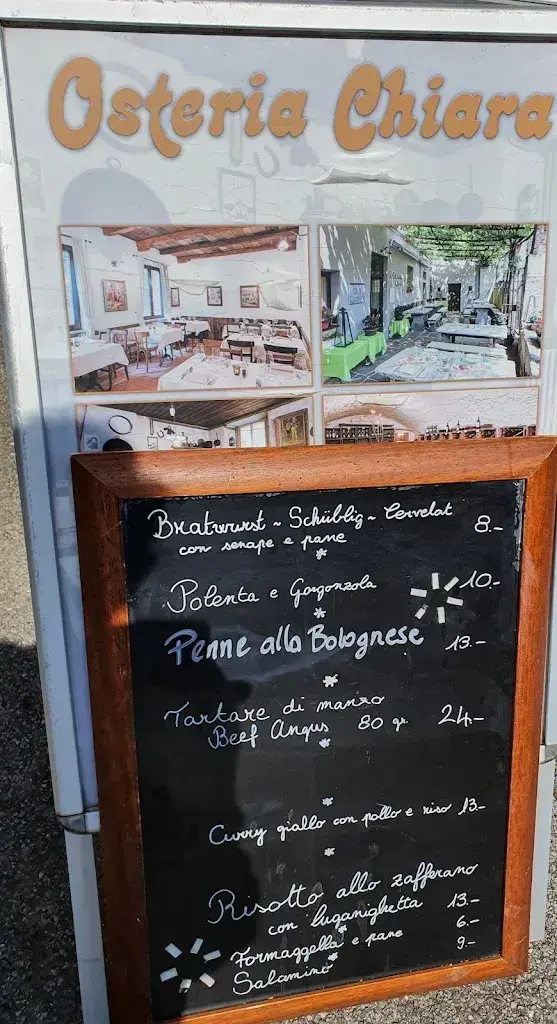 Osteria Chiara
Bratwurst ~ Schüblig ~ Cervelat 8.-
con senape e pane
Polenta e Gorgonzola 10.-
Penne alla Bolognese 13.-
Tartare di manzo
Beef Angus 80 gr 24.-
Curry giallo con pollo e riso 13.-
Risotto allo zafferano
con luganighetta 13.-
Formaggella e pane 6.-
Salamino 9.-